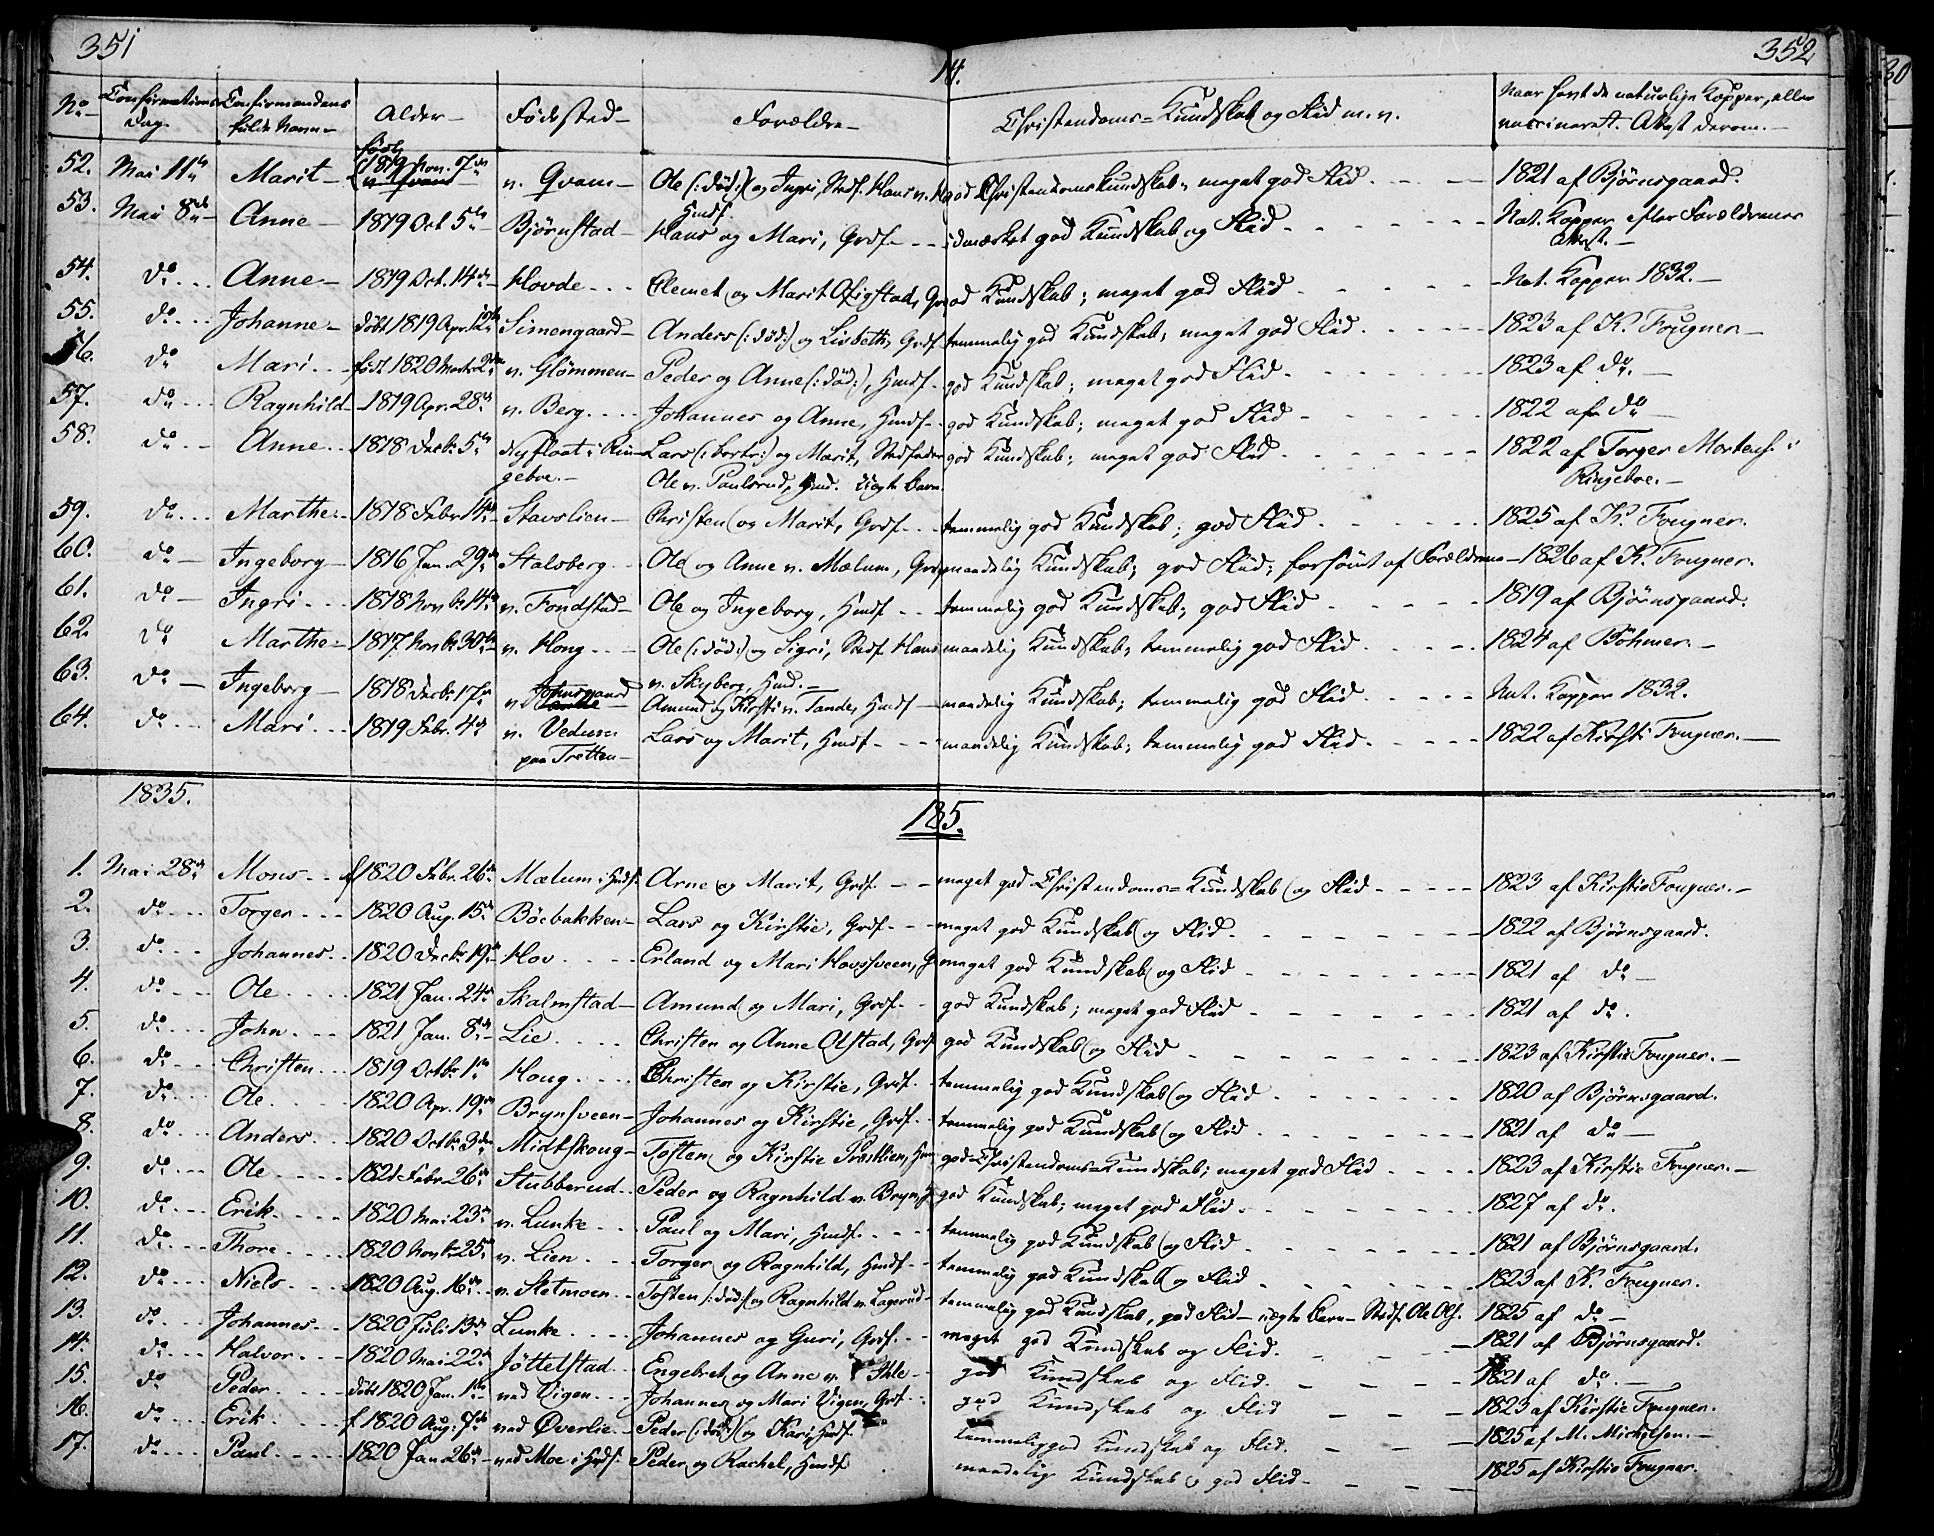 351
14.
352
No Confirmations Dag. Confirmandens fulde Navn Alder Fødested Forældre Christendoms-Kundskab og Flid m. v. Naar havt de naturlige Kopper, eller vaccineret. Attest derom.
52. Mai 11te Marit født 1819 Nov. 7de v. Qvam Ole (: død :) og Ingri, Stedf. Hans v. god Christendomskundskab, meget god Flid 1821 af Bjørnsgaard.
53. Mai 8de Anne 1819 Oct 5te Bjørnstad Hans og Mari, Grdf. udmærket god Kundskab og Flid Nat. Kopper efter Forældrenes Attest.
54. do Anne 1819 Oct. 14de Hovde Clemet og Marit Ofigstad, god Kundskab; meget god Flid Nat. Kopper 1832.
55. do Johanne døbt 1819 Apr. Simengaard Anders (: død :) og Lisbeth, Grdf. temmelig god Kundskab; meget god Flid 1823 af K. Fougner
56. do Mari født 1820 Marts 2den v. Glömmen Peder og Anne (: død :), Husf. god Kundskab; meget god Flid 1823 af do.
57. do Ragnhild 1819 Apr. 28de v. Berg Johannes og Anne, Husf. god Kundskab; meget god Flid 1822 af do
58. do Anne 1818 Decbr 5te Nyfloat i Rin- Lars (: bortr :) og Marit, Stedfader god Kundskab; meget god Flid 1822 af Torger Mortens. i
geboe. Ole v. Paulsrud, Husm. Uægte Barn. Ringeboe.
59. do Marthe 1818 Febr 14de Stavslien Christen og Marit, Grdf. temmelig god Kundskab; god Flid 1825 af K. Fougner.
60. do Ingeborg 1816 Jan. 29de Stalsberg Ole og Anne v. Mælum, maadelig Kundskab; god Flid; forsömt af Forældrene 1826 af K. Fougner.
61. do Ingri 1818 Novbr 14de v. Fondstad Ole og Ingeborg, Husf. temmelig god Kundskab; god Flid 1819 af Bjørnsgaard.
62. do Marthe 1817 Novbr 30te v. Houg Ole (: død :) og Sigri, Stedf. Hans maadelig Kundskab; temmelig god Flid 1824 af Böhmer.
v. Skyberg, Husm.
63. do Ingeborg 1818 Decbr 17de v. Johnsgaard Amund og Kirsti v. Tande, Husf. maadelig Kundskab; temmelig god Flid Nat. Kopper 1832.
64. do Mari 1819 Febr. 4de v. Vedum Lars og Marit, Husf. maadelig Kundskab; temmelig god Flid 1822 af Kirsti Fougner.
paa Tretten
1835.
185.
1. Mai 28de Mons f 1820 Febr. 26de Mælum i Husf. Arne og Marit, Grdf. meget god Christendoms-Kundskab og Flid 1823 af Kirstie Fougner.
2. do Torger 1820 Aug. 15de Böebakken Lars og Kirstie, Grdf. meget god Kundskab og Flid 1822 af Bjørnsgaard.
3. do Johannes 1820 Decbr 19de Hov Erland og Mari Hovssveen, G meget god Kundskab og Flid 1821 af do
4. do Ole 1821 Jan. 24de Skalmstad Amund og Mari, Grdf. god Kundskab; meget god Flid 1821 af do.
5. do John 1821 Jan. 8de Lie Christen og Anne Olstad, Grdf god Kundskab og Flid 1823 af Kirstie Fougner.
6. do Christen 1819 Octbr 1ste Houg Christen og Kirstie, Grdf. temmelig god Kundskab og Flid 1820 af Bjørnsgaard.
7. do Ole 1820 Apr. 19de Brynsveen Johannes og Kirstie, Grdf. temmelig god Kundskab og Flid 1821 af do
8. do Anders 1820 Octbr 3die Midtskoug Tosten og Kirstie god Christendoms-Kundskab; meget god Flid 1823 af Kirstie Fougner.
9. do Ole 1821 Febr. 26de Stubberud Peder og Ragnhild v. Bryn, god Kundskab; meget god Flid 1827 af do.
10. do Erik 1820 Mai 23de v. Lunke Paul og Mari, Husf. temmelig god Kundskab og Flid 1821 af Bjørnsgaard.
11. do Thore 1820 Novbr 25de v. Lien Torger og Ragnhild, Husf. temmelig god Kundskab og Flid 1823 af K. Fougner.
12. do Niels 1820 Aug. 16de v. Sletmoen Tosten (: død :) og Ragnhild v. Lagerud temmelig god Kundskab, god Flid uægte Barn Stedf. Ole Ols. 1825 af do
13. do Johannes 1820 Juli 13de Lunke Johannes og Guri, Grdf. meget god Kundskab og Flid. 1821 af Bjørnsgaard.
14. do Halvor 1820 Mai 22de Jöttelstad Engebret og Anne v. Ihle god Kundskab og Flid. 1821 af do.
15. do Peder døbt 1820 Jan. 1ste ved Vigen Johannes og Mari Vigen, Grdf god Kundskab og Flid 1823 af Kirstie Fougner.
16. do Erik f 1820 Aug. 7de ved Øverlie Peder (: død :) og Kari Husf. temmelig god Kundskab og Flid. 1825 af M. Michelsen.
17. do Paul 1820 Jan 26de ved Moe i Husf. Peder og Rachel, Husf. maadelig Kundskab og god Flid 1825 af Kirstie Fougner.